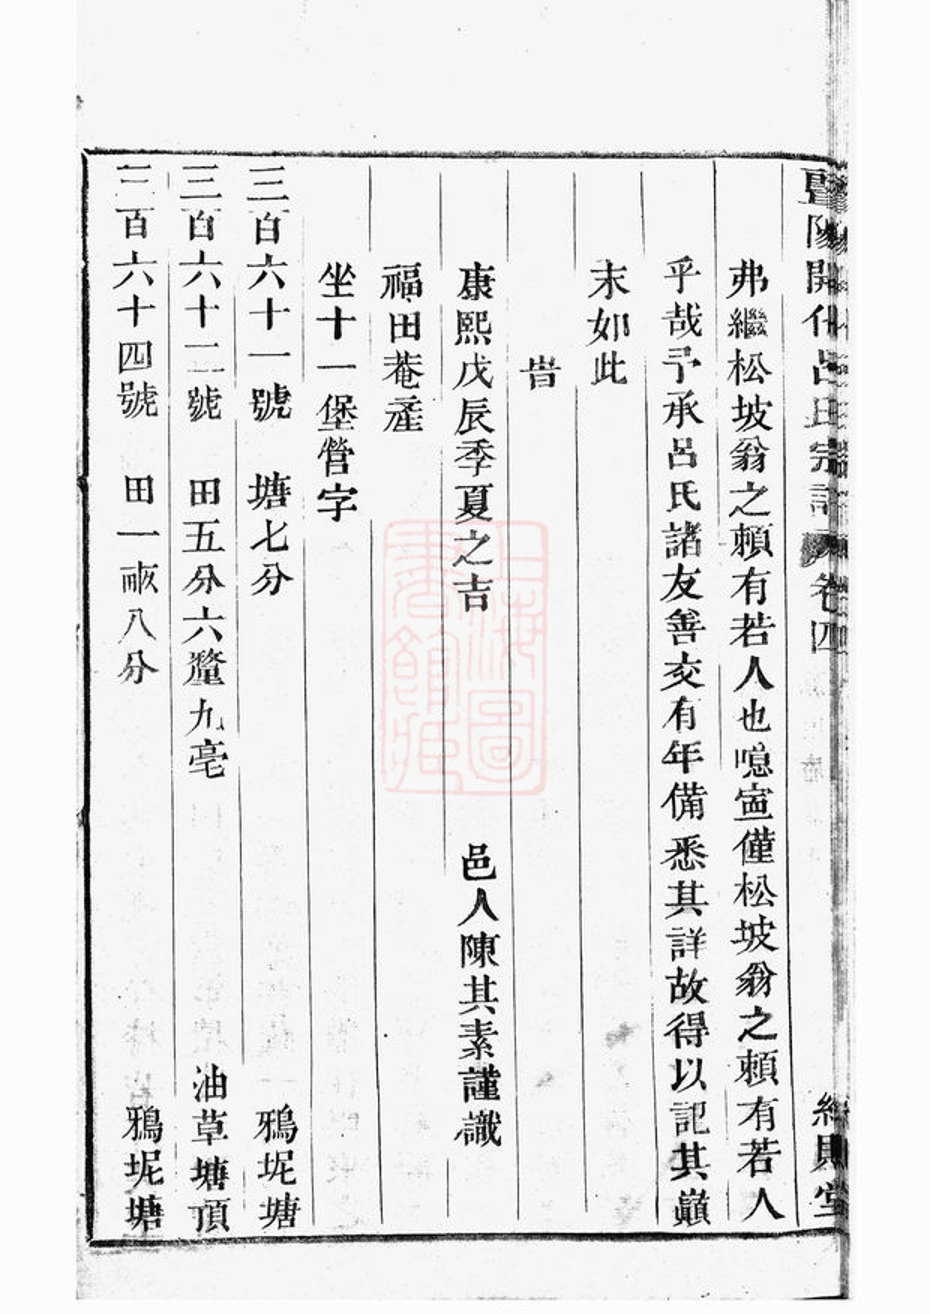 暨陽開化呂氏宗譜 卷四
弗繼松坡翁之賴有若人也噫寔僅松坡翁之賴有若人
乎哉予承呂氏諸友善交有年備悉其詳故得以記其巔
末如此
旹
康熙戊辰季夏之吉 邑人陳其素謹識
福田菴產
坐十一堡營字
三百六十一號 塘七分 鴉坭塘
三百六十二號 田五分六釐九毫 油草塘頂
三百六十四號 田一畝八分 鴉坭塘
上海圖書館藏